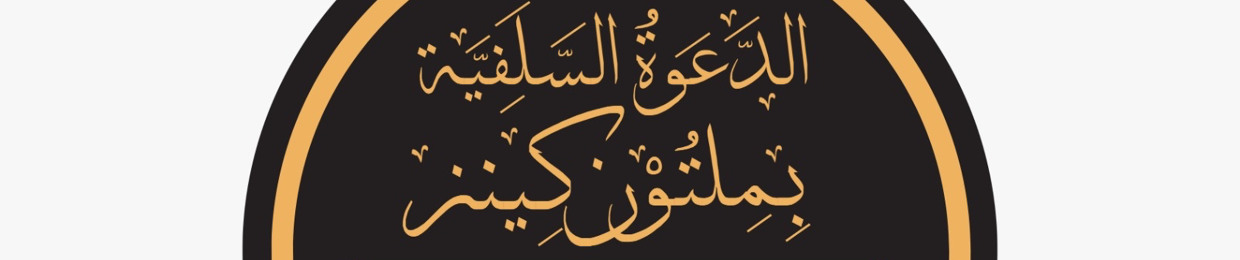 الدَّعَوَةُ السَّلَفِيَّة
بِمِلتُوْن كِينز